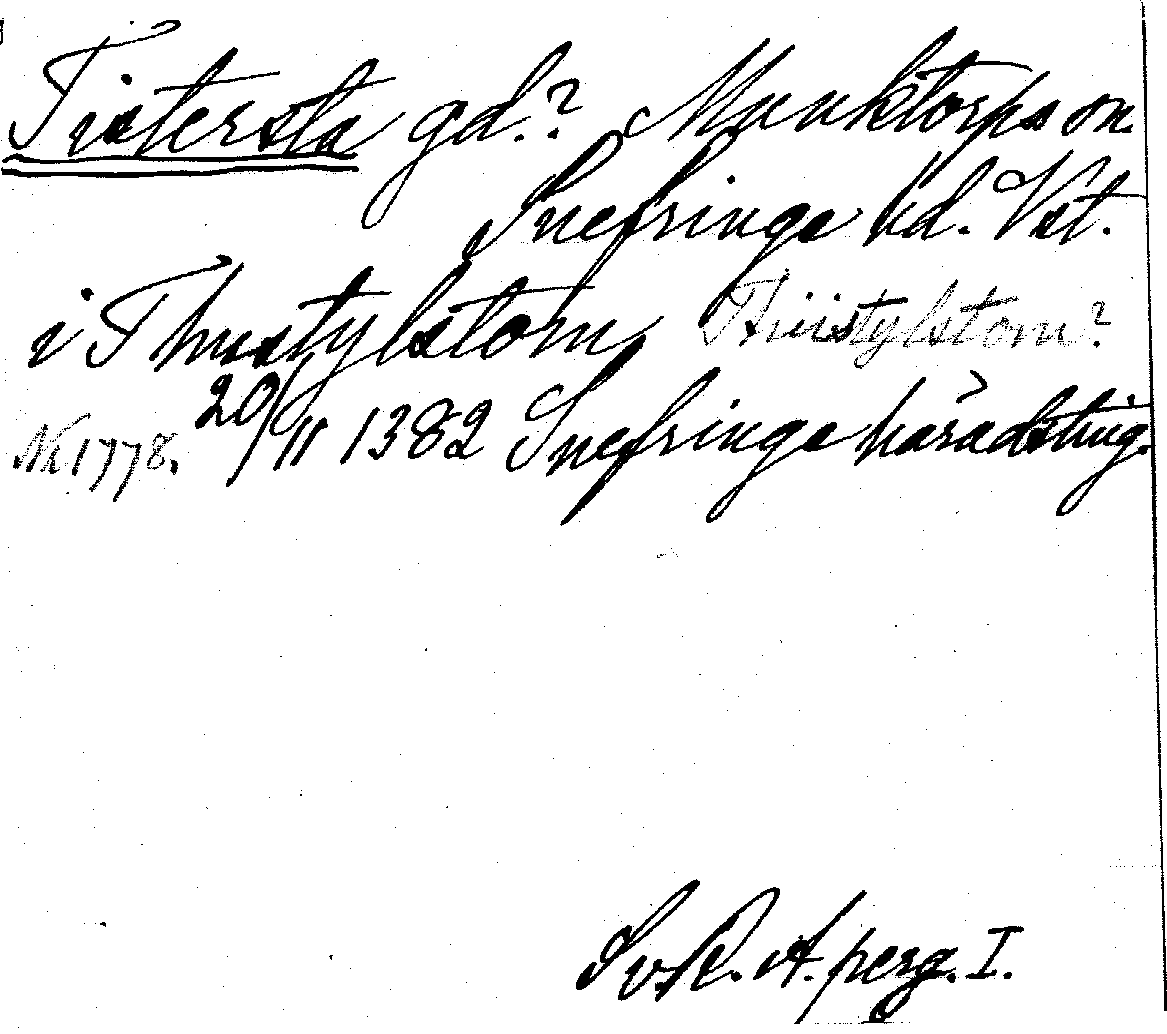 Tistersta gd.? Munktorps sn.
Snefringe hd. Vst.
i Thustylstom Thiistylstom?
Nr 1778. 20/11 1382 Snefringe häradsting.
Sv. R. A. perg. I.